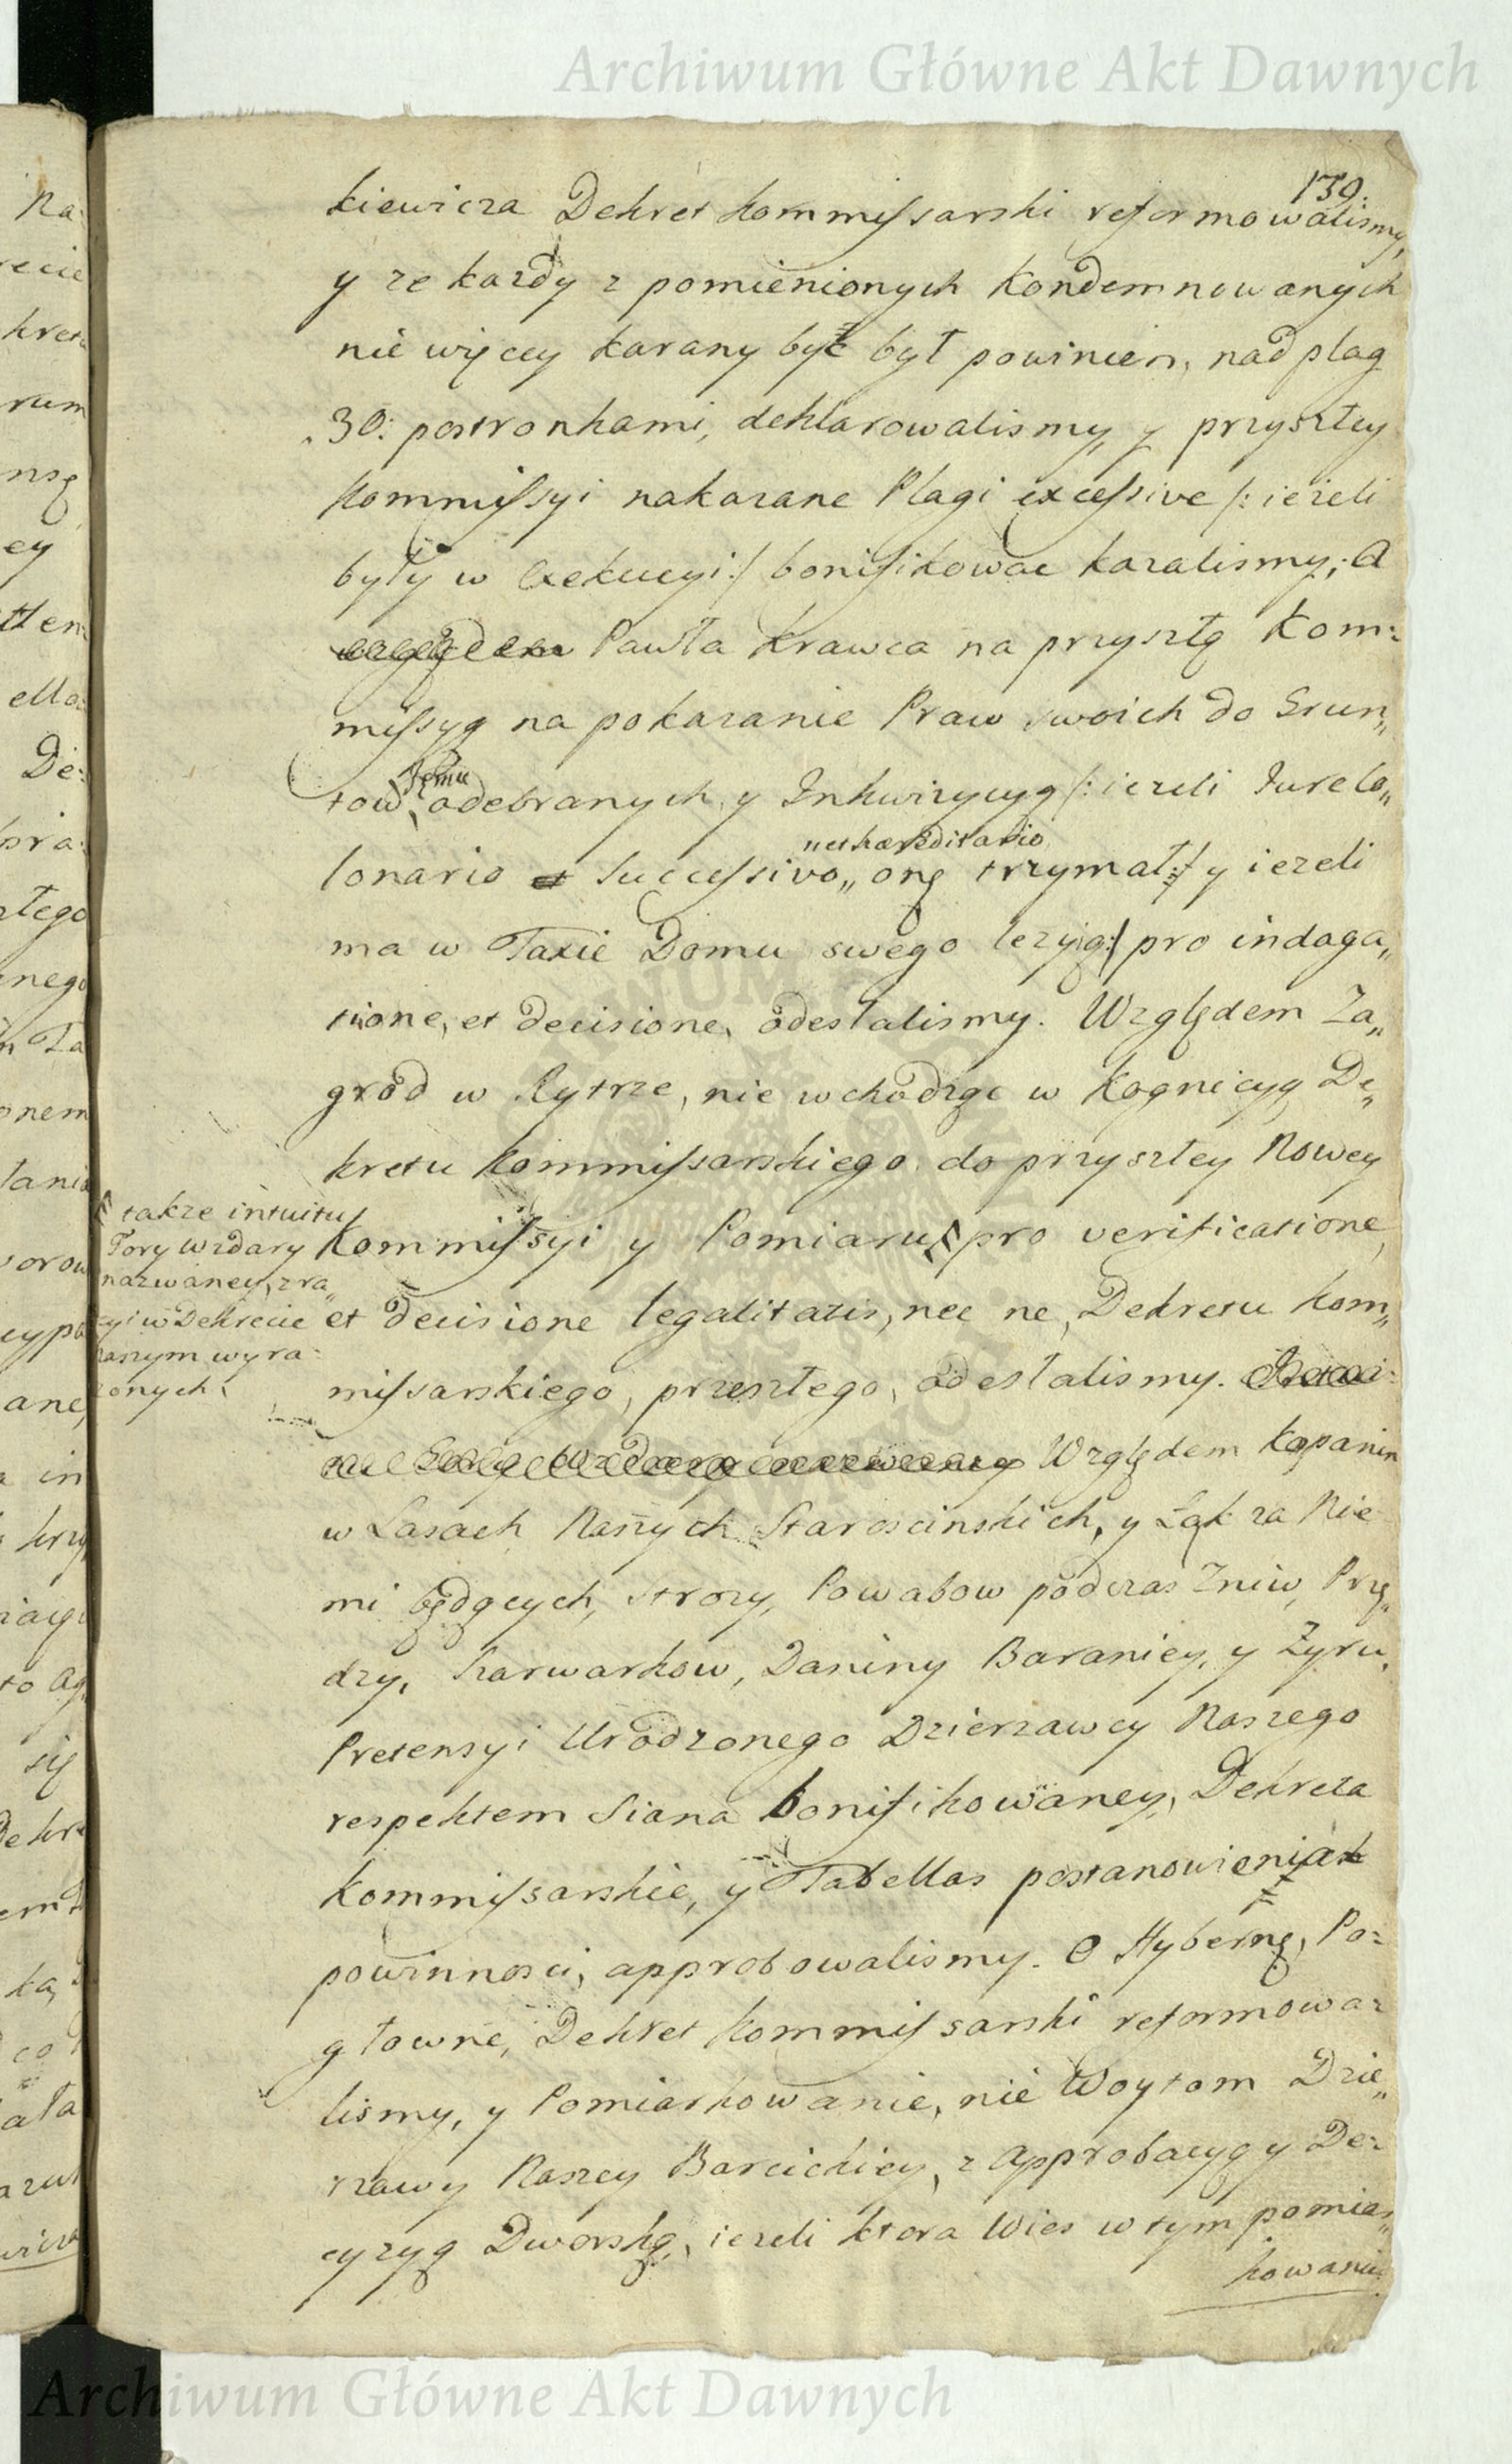 Archiwum Główne Akt Dawnych
139.
kiewicza Dekret Kommissarski reformowalismy,
y ze kazdy z pomienionych Kondemnowanych
nie więcey karany być był powinien, nad plag
30: postronkami, deklarowalismy, y przyszłey
Kommissyi nakazane Plagi excessive /: ieżeli
były w Exekucyi:/ bonifikowac kazalismy; A
względem Pawła Krawca na przyszłą Kom=
missyą na pokazanie Praw swoich do Grun„
tow, Jemu odebranych y Inkwizycyą /: iezeli Jure Co„
lonario et Successivo „et haereditario „ one trzymał:/ y iezeli
ma w Taxie Domu swego lezyią:/ pro indaga„
tione, et decisione, odesłalismy. Względem Za„
grod w Rytrze, nie wchodząc w Kognicyą De„
kretu Kommissarskiego do przyszłey Nowey
Kommissyi y Pomiaru, pro verificatione,
także intuitu
Tory Wzdary
nazwaney, zra„
cyi w Dekrecie
naszym wyra=
zonych,
et decisione legalitatis, nec ne, Dekretu Kom„
missarskiego, przeszłego, odesłalismy.
Względem Kopanin
w Lasach Naszych Staroscinskich, y Łąk za Nie
mi będących, Strozy, Powabow podczas Zniw, Prze„
dzy, Szarwarkow, Daniny Baraniey, y Zyru,
Pretensyi Urodzonego Dzierzawcy Naszego
respektem Siana bonifikowaney, Dekreta
Kommissarskie, y Tabellas postanowienia
powinnosci, approbowalismy. O Hybernę, Po=
głowne, Dekret Kommissarski reformowa=
lismy, y Pomiarkowanie, nie Woytom Dzie„
rzawy Naszey Barcickiey, z Approbacyą y De=
cyzyą Dworską, iezeli ktora Wies w tym pomiar„
kowaniu
Archiwum Główne Akt Dawnych